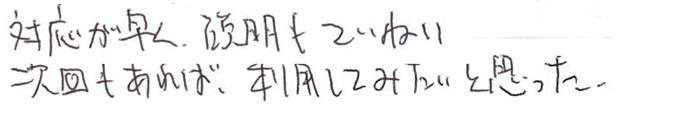 対応が早く、説明もていねい
次回もあれば、利用してみたいと思った。